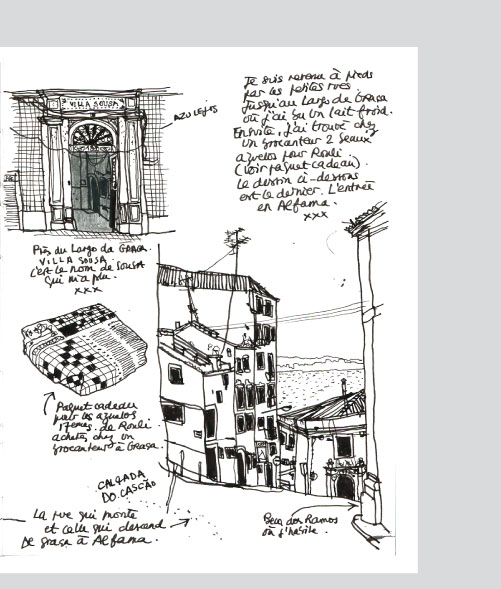 VILLA SOUSA
AZULEJOS
Je suis revenu à pieds
par les petites rues
jusqu'au Largo de GRAÇA
où j'ai bu un lait froid.
Ensuite, j'ai trouvé chez
un brocanteur 2 beaux
azuelos pour Rouli.
(voir paquet cadeau).
Le dessin ci-dessous
est le dernier. L'entrée
en Alfama.
xxx
Près du Largo da GRAÇA.
VILLA SOUSA
C'est le nom de SOUSA
qui m'a plu.
xxx
Paquet cadeau
pour les azuelos
17èmes de Rouli
achetés chez un
brocanteur à Graça.
CALÇADA
DO CASCÃO
La rue qui monte
et celle qui descend
de Graça à Alfama.
Beco dos Ramos
où j'habite.